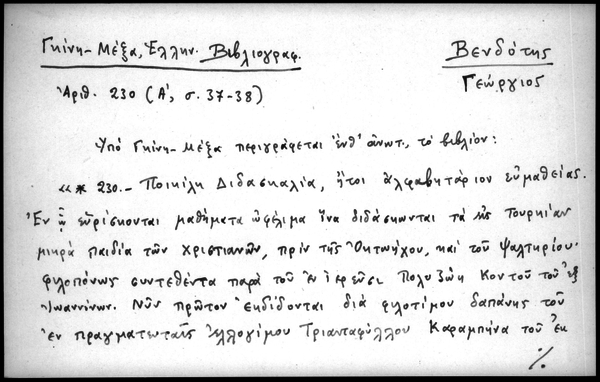 Γκίνη-Μέξα, Ἑλλην. Βιβλιογραφ.
Βενδότης
Γεώργιος
Ἀριθ. 230 (Α', σ. 37-38)
Ὑπό Γκίνη-Μέξα περιγράφεται ἔνθ' ἀνωτ., τό βιβλίον:
«* 230.- Ποικίλη Διδασκαλία, ἤτοι ἀλφαβητάριον εὐμαθείας.
Ἐν ᾧ εὑρίσκονται μαθήματα ὠφέλιμα ἵνα διδάσκωνται τά εἰς Τουρκίαν
μικρά παιδία τῶν χριστιανῶν, πρίν τῆς Ὀκτωήχου, καί τοῦ Ψαλτηρίου·
φιλοπόνως συντεθέντα παρά τοῦ ἐν ἱερεῦσι Πολυζώη Κοντοῦ τοῦ ἐξ
Ἰωαννίνων. Νῦν πρῶτον ἐκδίδονται διά φιλοτίμου δαπάνης τοῦ
ἐν πραγματευταῖς ἐλλογίμου Τριανταφύλλου Καραμπήνα τοῦ ἐκ
./.